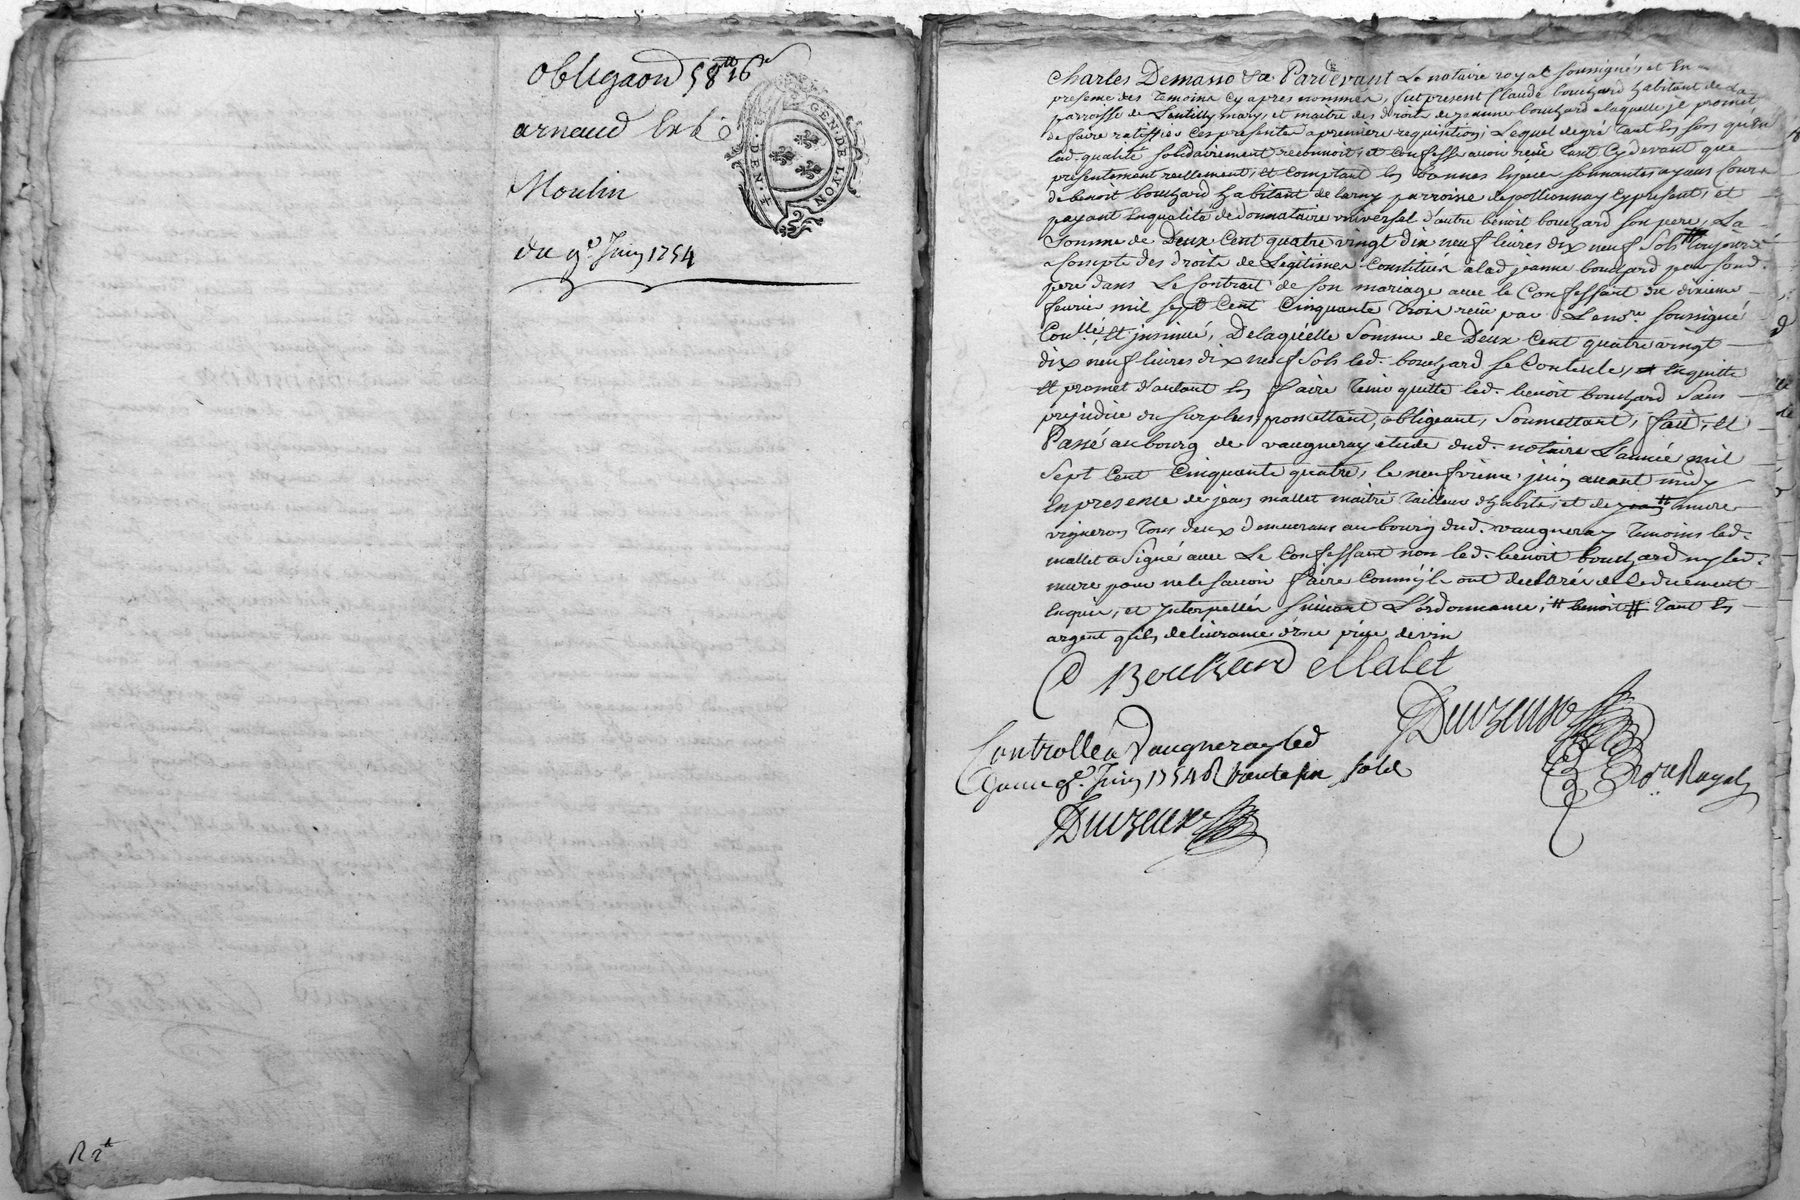 obligaon 58tt 16s
arnaud
Moulin
du 9e Juin 1754
GEN. DE LYON
R 2tt
Charles Demasso &a Pardevant Le notaire royal soussigné, et En
presence des temoins Cy apres nommés, fut present Claude bouchard habitant de La
parroisse de Lentilly mary, et maitre des droits de jeanne bouchard a laquelle je promet
de faire ratiffier Ces presentes a premiere requisition; Lequel de gré tant En son qu'En
lad. qualité solidairement reconnoit, et Confesse avoir reçû tant Cy devant que
presentement reellement, Et comptant En bonnes Especes sonnantes ayans Cours
de benoit bouchard habitant de larny parroisse de pollionnay Cy present, et
payant En qualité de donnataire universel d'autre benoit bouchard son pere, La
somme de Deux Cent quatre vingt dix neuf livres dix neuf sols # toujours
a Compte des droits de Legitimes Constitués a lad. jeanne bouchard par sond.
pere dans Le Contrait de son mariage avec le Confessant du dixieme
fevrier mil sept Cent Cinquante trois reçû par Le nore. soussigné
Conllé, Et insinué, De laquelle somme de Deux Cent quatre vingt
dix neuf livres dix neuf sols led. bouchard se Contente, Et En quitte
Et promet d'autant En faire tenir quitte led. benoit bouchard sans
prejudice du surplus, promettant, obligeant, soumettant, fait, Et
Passé au bourg de vaugneray etude dud. notaire L'année mil
sept Cent Cinquante quatre, le neufvieme juin avant midy
En presence de jean mallet maitre tailleur d'habits, et de # mure
vigneron tous deux demeurans au bourg dud. vaugneray temoins led.
mallet a signé avec Le Confessant non led. benoit bouchard ny led.
mure pour ne le savoir faire Comm'jls ont declarés de ce duement
Enquis, et jnterpellés suivant L'ordonnance, # benoit # tant En
argent qu'En delivrance d'une piece de vin
C Bouchard Malet
Duvzeuse
Controllé a Vaugneray led
jour 9e. Juin 1754 R trente six sols
Duvzeuse
nore Royal